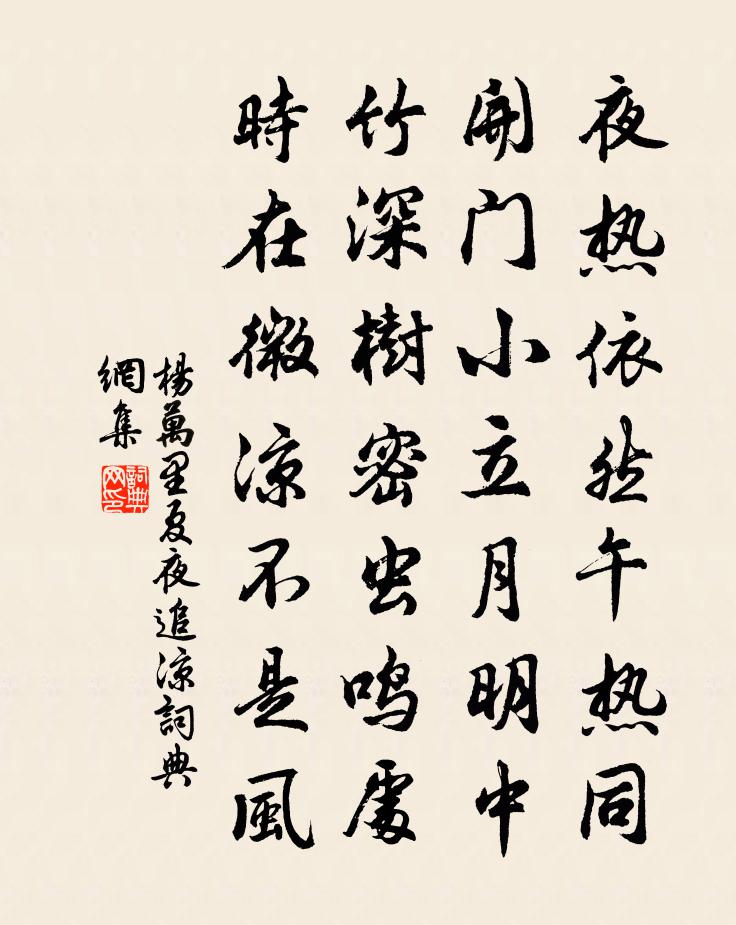 夜热依然午热同
開门小立月明中
竹深樹密虫鸣處
時在微涼不是風
楊萬里夏夜追涼詞典
網集
詞典网印